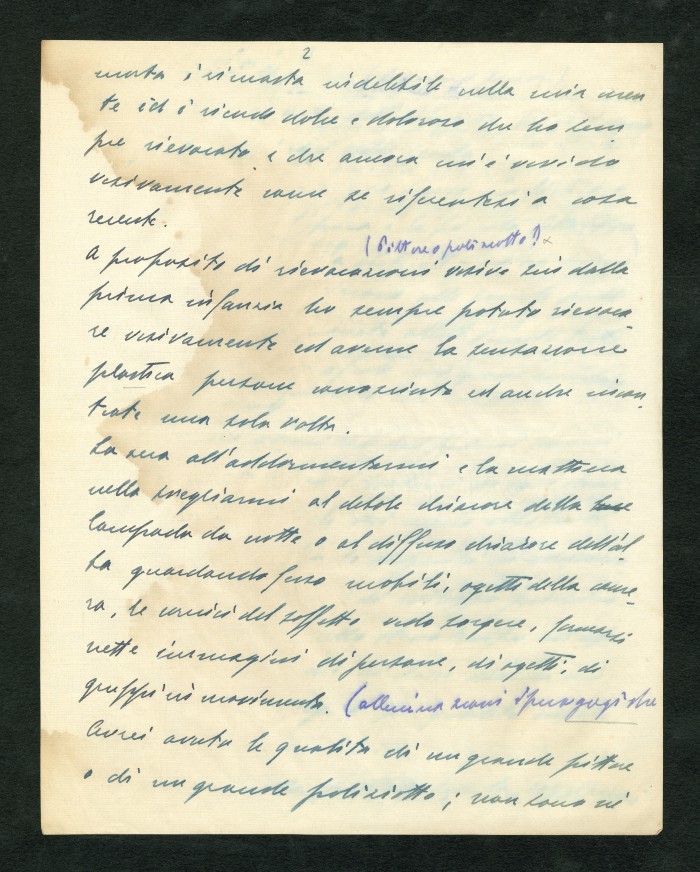 2
morta è rimasta indelebile nella mia men
te ed è ricordo dolce e doloroso che ho sem
pre rievocato, e che ancora mi è vivido
visivamente come se riferentesi a cosa
recente.
(Pittore o poliziotto!)
A proposito di rievocazioni visive sin dalla
prima infanzia ho sempre potuto rievoca-
re visivamente ed averne la sensazione
plastica persone conosciute ed anche incon
trate una sola volta.
La sera all'addormentarmi e la mattina
nello svegliarmi al debole chiarore della
lampada da notte o al diffuso chiarore dell'al
ba guardando fuso mobili, ogetti della came-
ra, le cornici del soffitto vedo sorgere, formarsi
nette immagini di persone, di ogetti, di
gruppi in movimento. (allucinazioni ipnagogiche
Avrei avuta le qualità di un grande pittore
o di un grande poliziotto; non sono nè